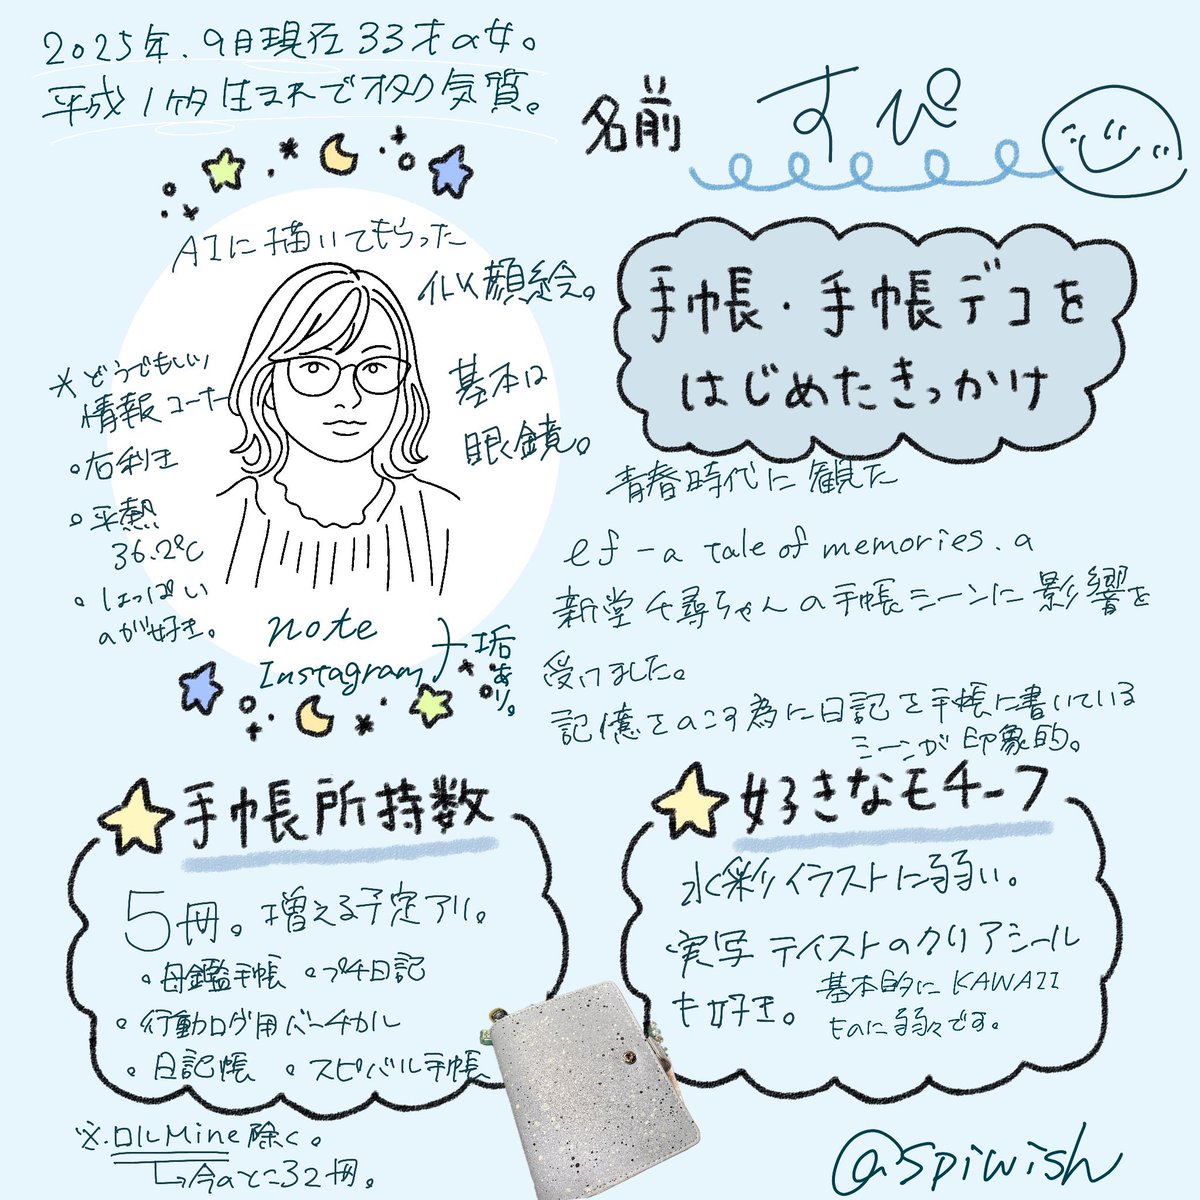 2025年.9月現在33才の女。
平成1ケタ生まれでオタク気質。
名前 すぴ
AIに描いてもらった
似顔絵。
基本は
眼鏡。
*どうでもいい
情報コーナー
。右利き
。平熱
36.2℃
。しょっぱい
のが好き。
note
Instagram
垢あり。
手帳・手帳デコを
はじめたきっかけ
青春時代に観た
ef - a tale of memories. の
新堂千尋ちゃんの手帳シーンに影響を
受けました。
記憶をのこす為に日記を手帳に書いている
シーンが印象的。
手帳所持数
5冊。増える予定アリ。
。母鑑手帳 。プチ日記
。行動ログ用バーチカル
。日記帳 。スピバル手帳
※.ロルMine除く。
↳今のところ32冊。
好きなモチーフ
水彩イラストに弱い。
実写テイストのクリアシール
も好き。
基本的にKAWAII
ものに弱々です。
@spiwish